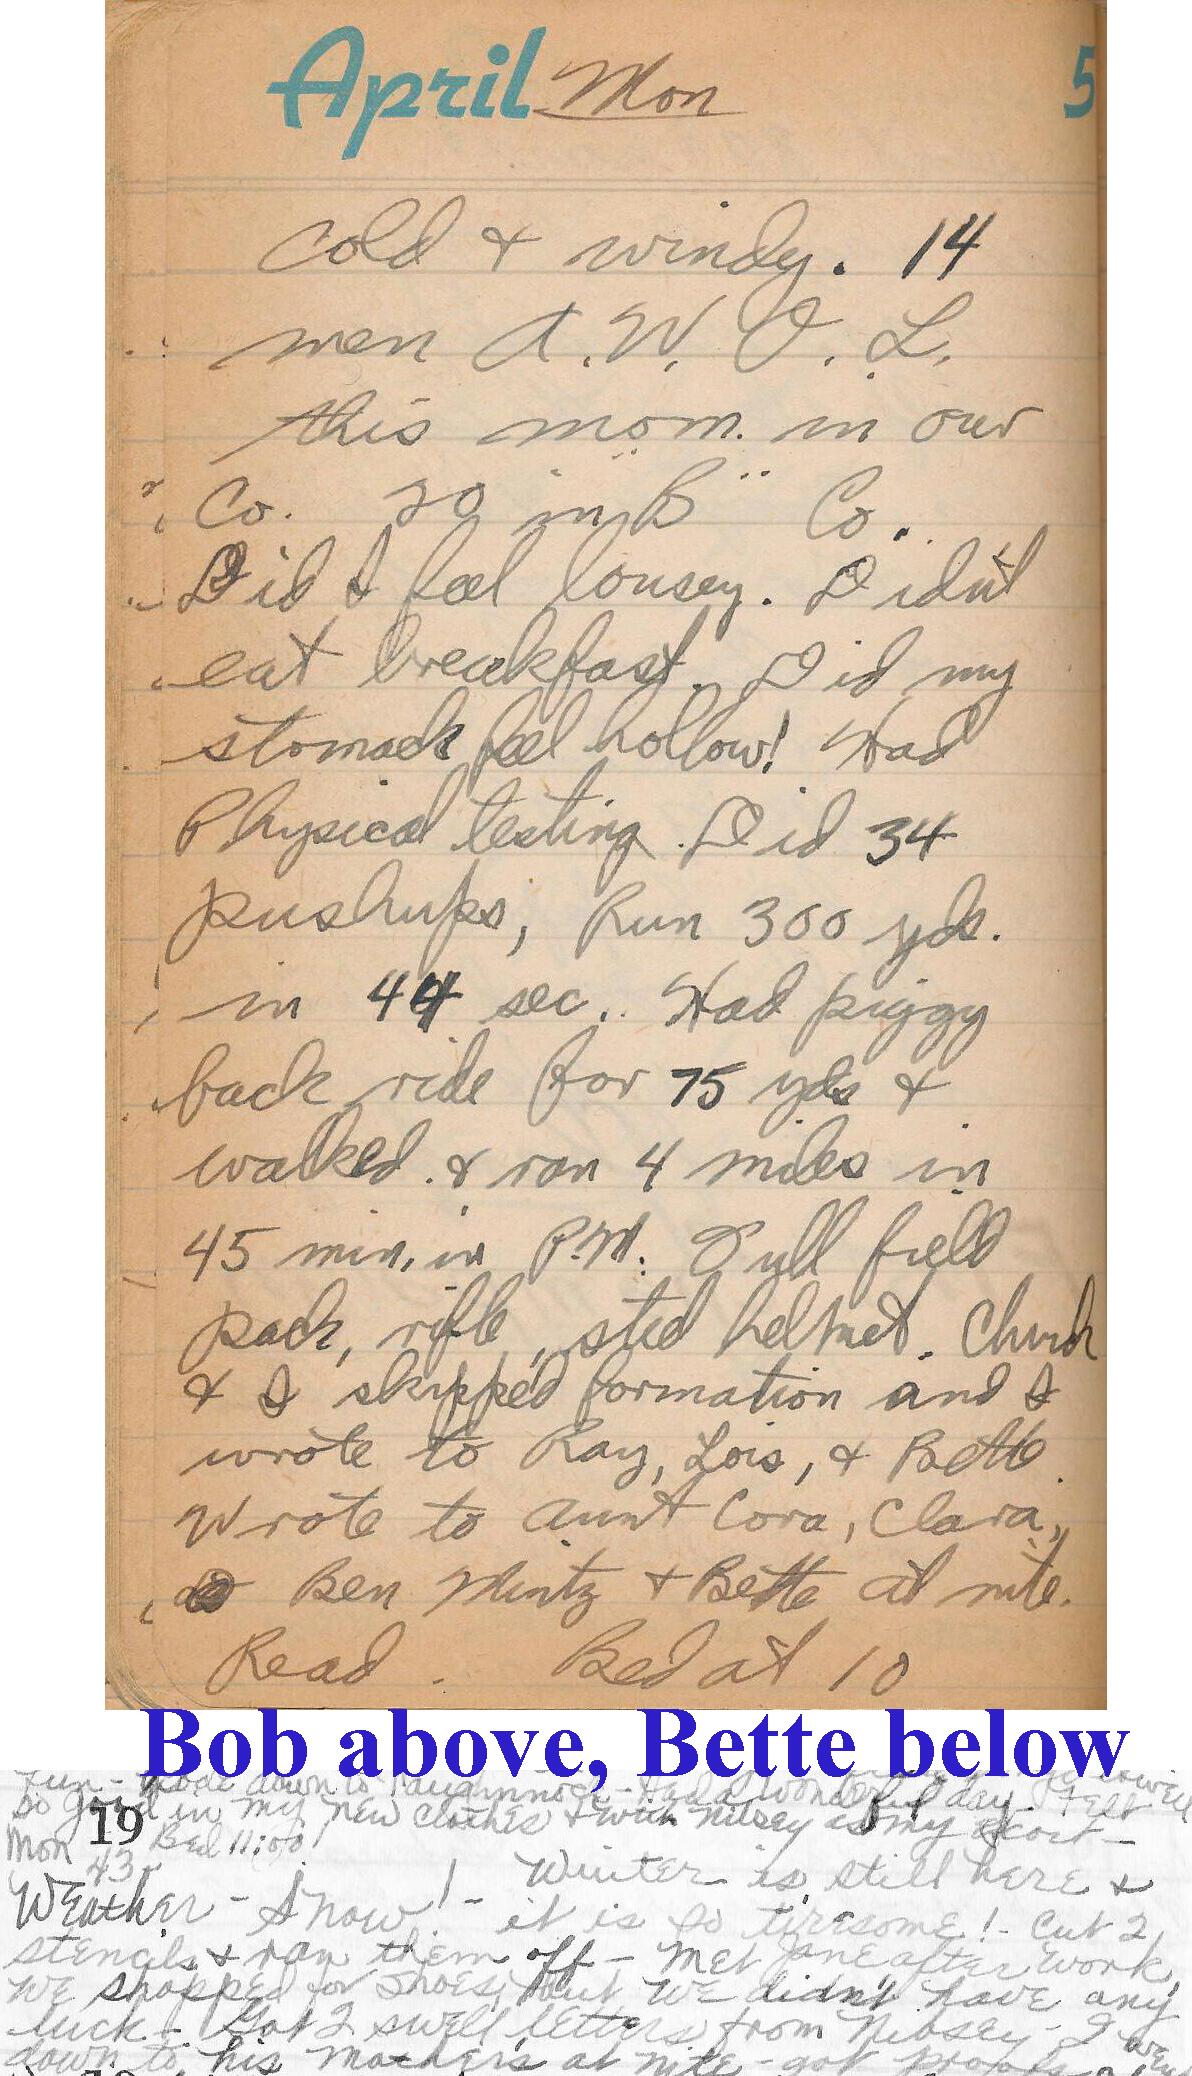 April Mon 5
Cold & windy. 14
men A.W.O.L.
this morn. in our
Co. 20 in "B" Co.
Did I feel lousey. Didn't
eat breakfast. Did my
stomack feel hollow! Had
Physical testing. Did 34
pushups, Run 300 yds.
in 44 sec.. Had piggy
back ride for 75 yds &
walked & ran 4 miles in
45 min. in P.M. Full field
pack, rifle, steel helmet. Church
& I skipped formation and I
wrote to Ray, Lois, & Bette.
Wrote to Aunt Cora, Clara,
Ben Mintz & Bette at nite.
Read. Bed at 10
Bob above, Bette below
Fun - down to - Had a wonderful day. Felt
so good in my new clothes & with Nibsey as my escort -
Mon 19 43 Bed 11:00
Winter is still here &
Weather - Snow! - it is so tiresome! - Cut 2
stencils & ran them off - Met Jane after work,
We shopped for shoes, but we didn't have any
luck - Got 2 swell letters from Nibsey - I went
down to his mother's at nite - got proofs